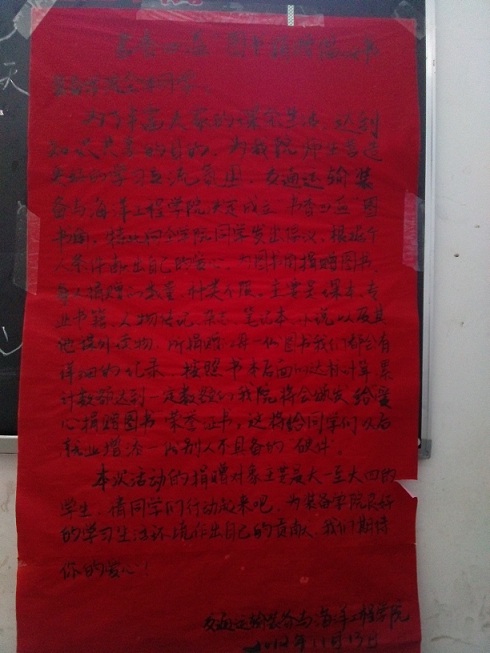 书香四溢"图书捐赠倡议书
装备学院全体同学：
为了丰富大家的课余生活，达到
知识共享的目的，为我院师生营造
良好的学习交流氛围，交通运输装
备与海洋工程学院决定成立"书香四溢"图
书角，特此向全学院同学发出倡议，根据个
人条件献出自己的爱心，为图书角捐赠图书，
每人捐赠的数量、种类不限，主要是课本、专
业书籍、人物传记、杂志、笔记本、小说以及其
他课外读物，所捐赠的每一份图书我们都会有
详细的记录，按照书本后面的达标计算累
计数额达到一定数额的我院将会颁发给爱
心捐赠图书荣誉证书，这将给同学们以后
就业增添一份别人不具备的"硬件"。
本次活动的捐赠对象主要是大一至大四的
学生，请同学们行动起来吧，为装备学院良好
的学习生活环境作出自己的贡献，我们期待
你的爱心！
交通运输装备与海洋工程学院
2012年11月13日